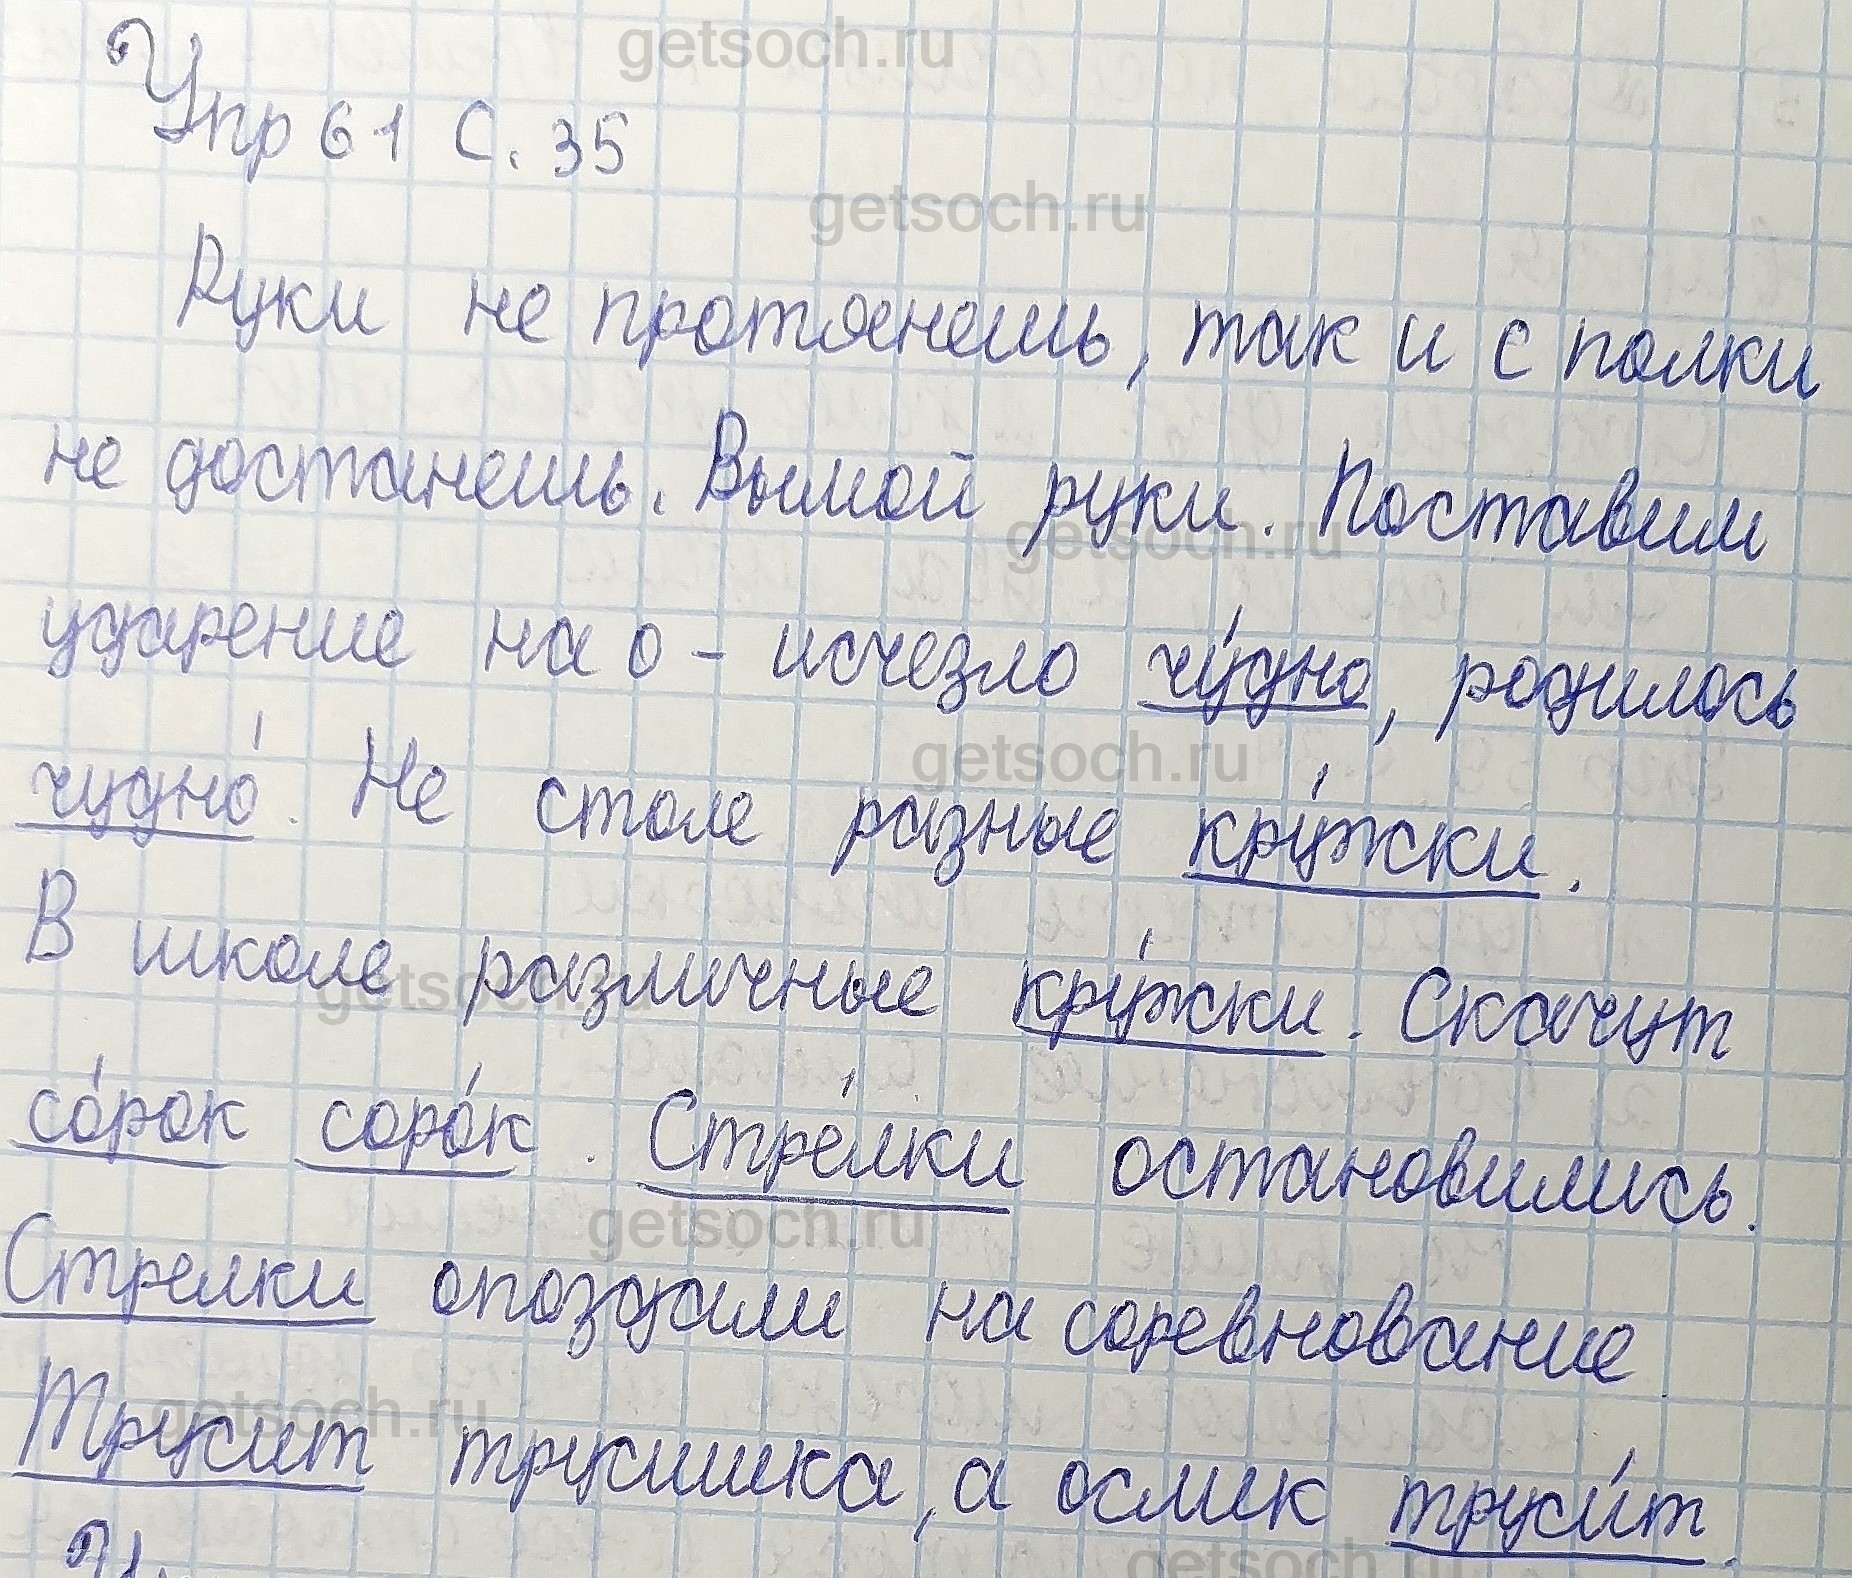 getsoch.ru
Упр 61 с. 35
getsoch.ru
Руки не протянешь, так и с полки
не достанешь. Вымой руки. Поставим
getsoch.ru
ударение на о - исчезло чу́дно, родилось
getsoch.ru
чудно́. На столе разные кру́жки.
В школе различные кру́жки. Скачут
getsoch.ru
со́рок соро́к. Стре́лки остановились.
getsoch.ru
Стрелки опоздали на соревнование.
getsoch.ru
Трусит трусишка, а ослик труси́т.
getsoch.ru